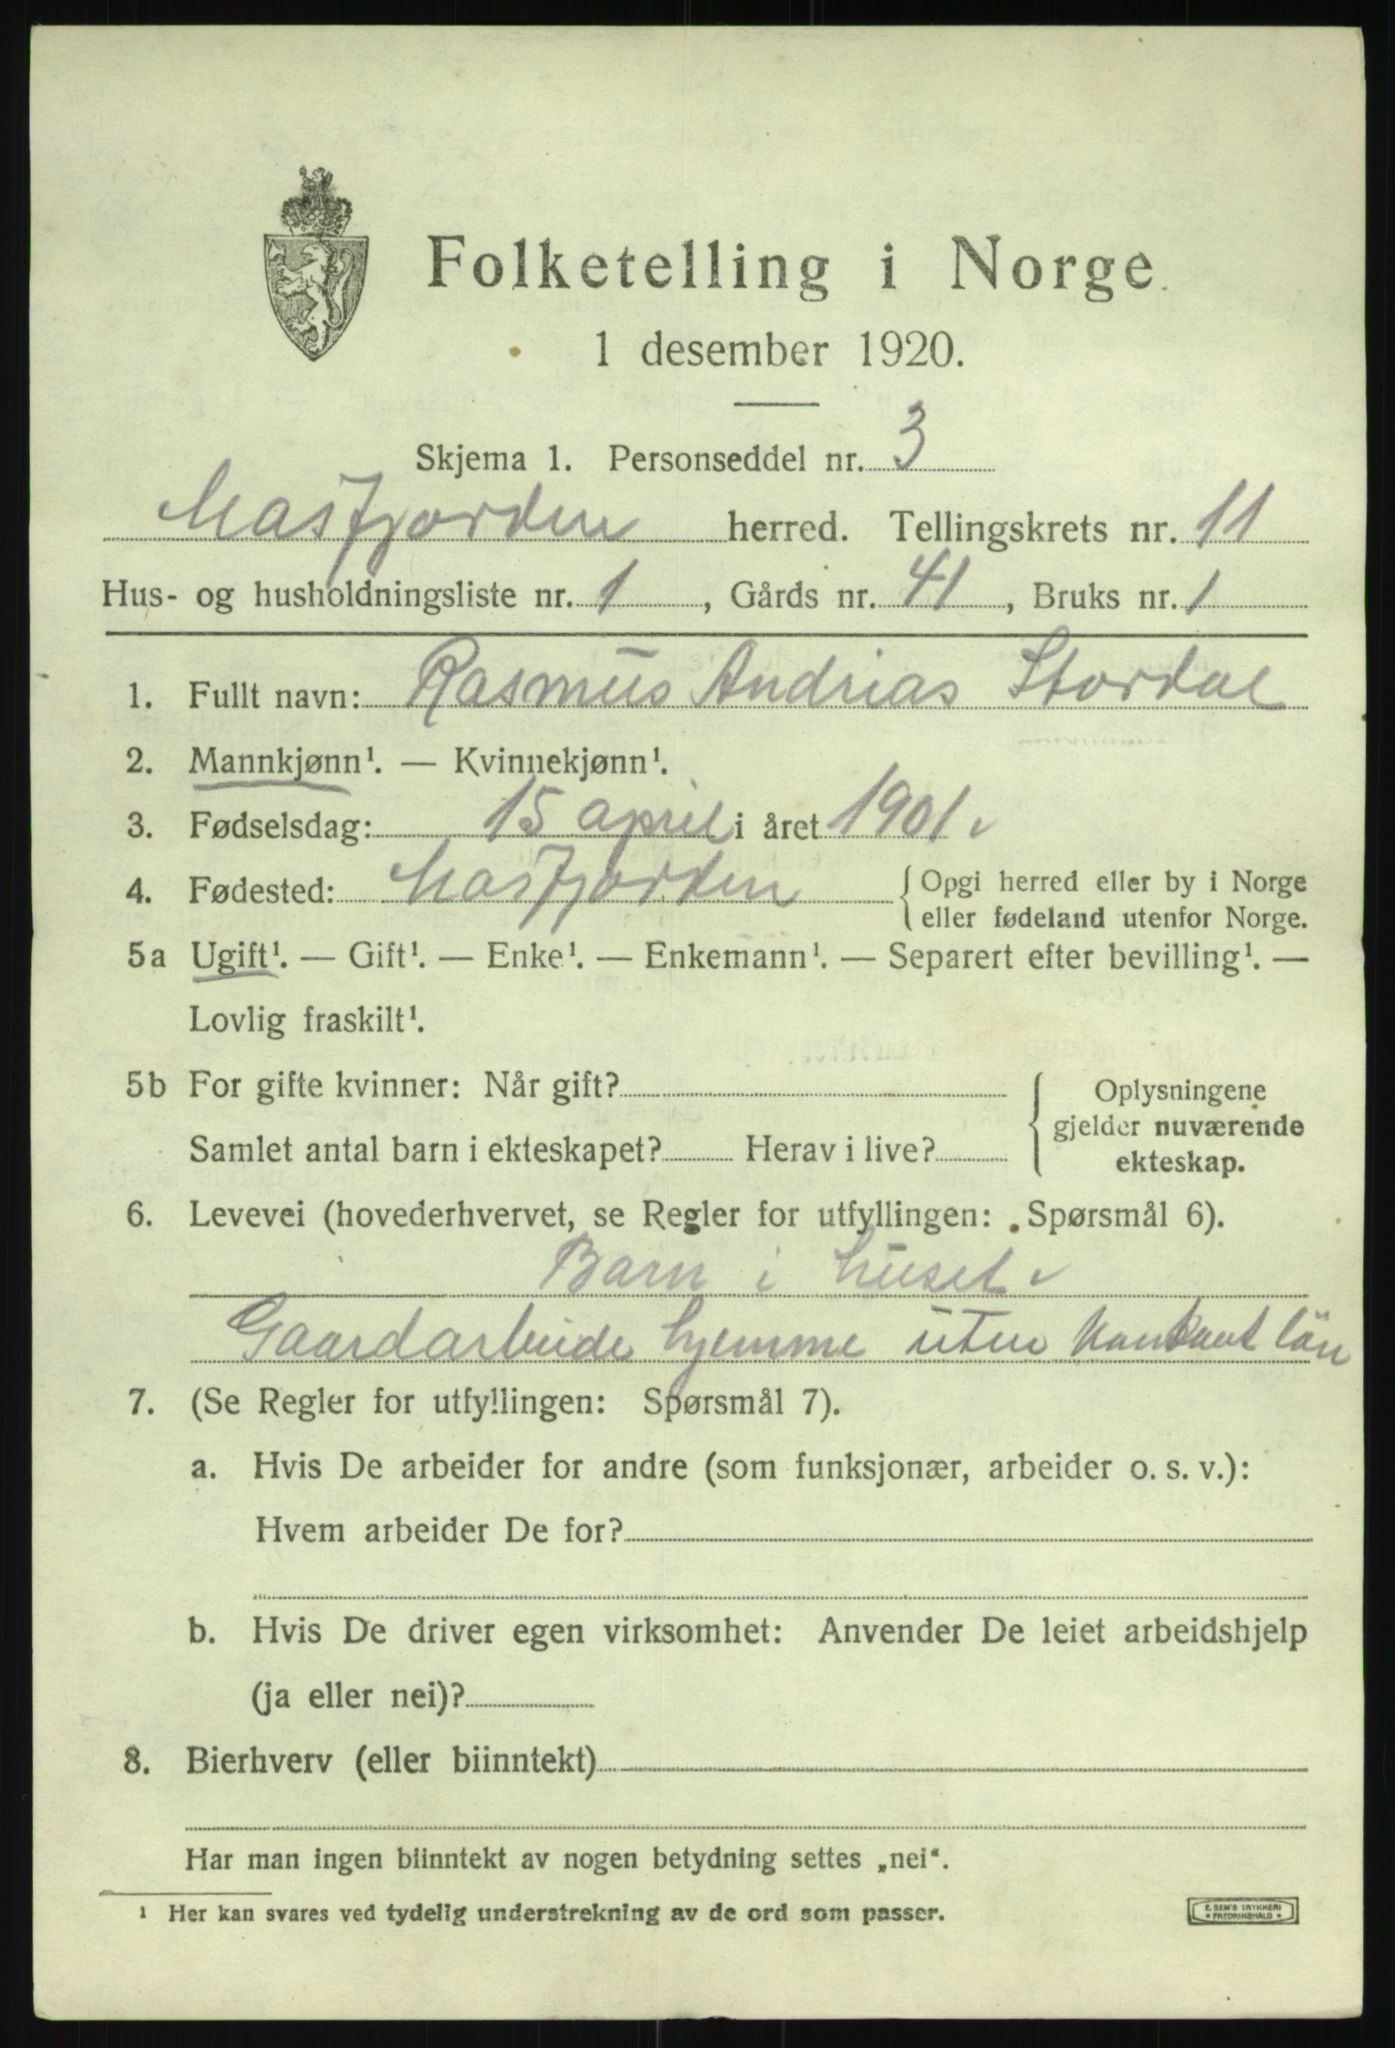 Folketelling i Norge
1 desember 1920.
Skjema 1. Personseddel nr. 3
Masfjorden herred. Tellingskrets nr. 11
Hus- og husholdningsliste nr. 1, Gårds nr. 41, Bruks nr. 1
1. Fullt navn: Rasmus Andrias Stordal
2. Mannkjønn¹. — Kvinnekjønn¹.
3. Fødselsdag: 15 april i året 1901
4. Fødested: Masfjorden { Opgi herred eller by i Norge
eller fødeland utenfor Norge.
5a Ugift¹. — Gift¹. — Enke¹. — Enkemann¹. — Separert efter bevilling¹. —
Lovlig fraskilt¹.
5b For gifte kvinner: Når gift? { Oplysningene
gjelder nuværende
Samlet antal barn i ekteskapet? Herav i live?
ekteskap.
6. Levevei (hovederhvervet, se Regler for utfyllingen: Spørsmål 6).
Barn i huset
Gaardarbeide hjemme uten kontant lön
7. (Se Regler for utfyllingen: Spørsmål 7).
a. Hvis De arbeider for andre (som funksjonær, arbeider o. s. v.):
Hvem arbeider De for?
b. Hvis De driver egen virksomhet: Anvender De leiet arbeidshjelp
(ja eller nei)?
8. Bierhverv (eller biinntekt)
Har man ingen biinntekt av nogen betydning settes „nei“.
¹ Her kan svares ved tydelig understrekning av de ord som passer.
E. SEM'S TRYKKERI
FREDRIKSHALD